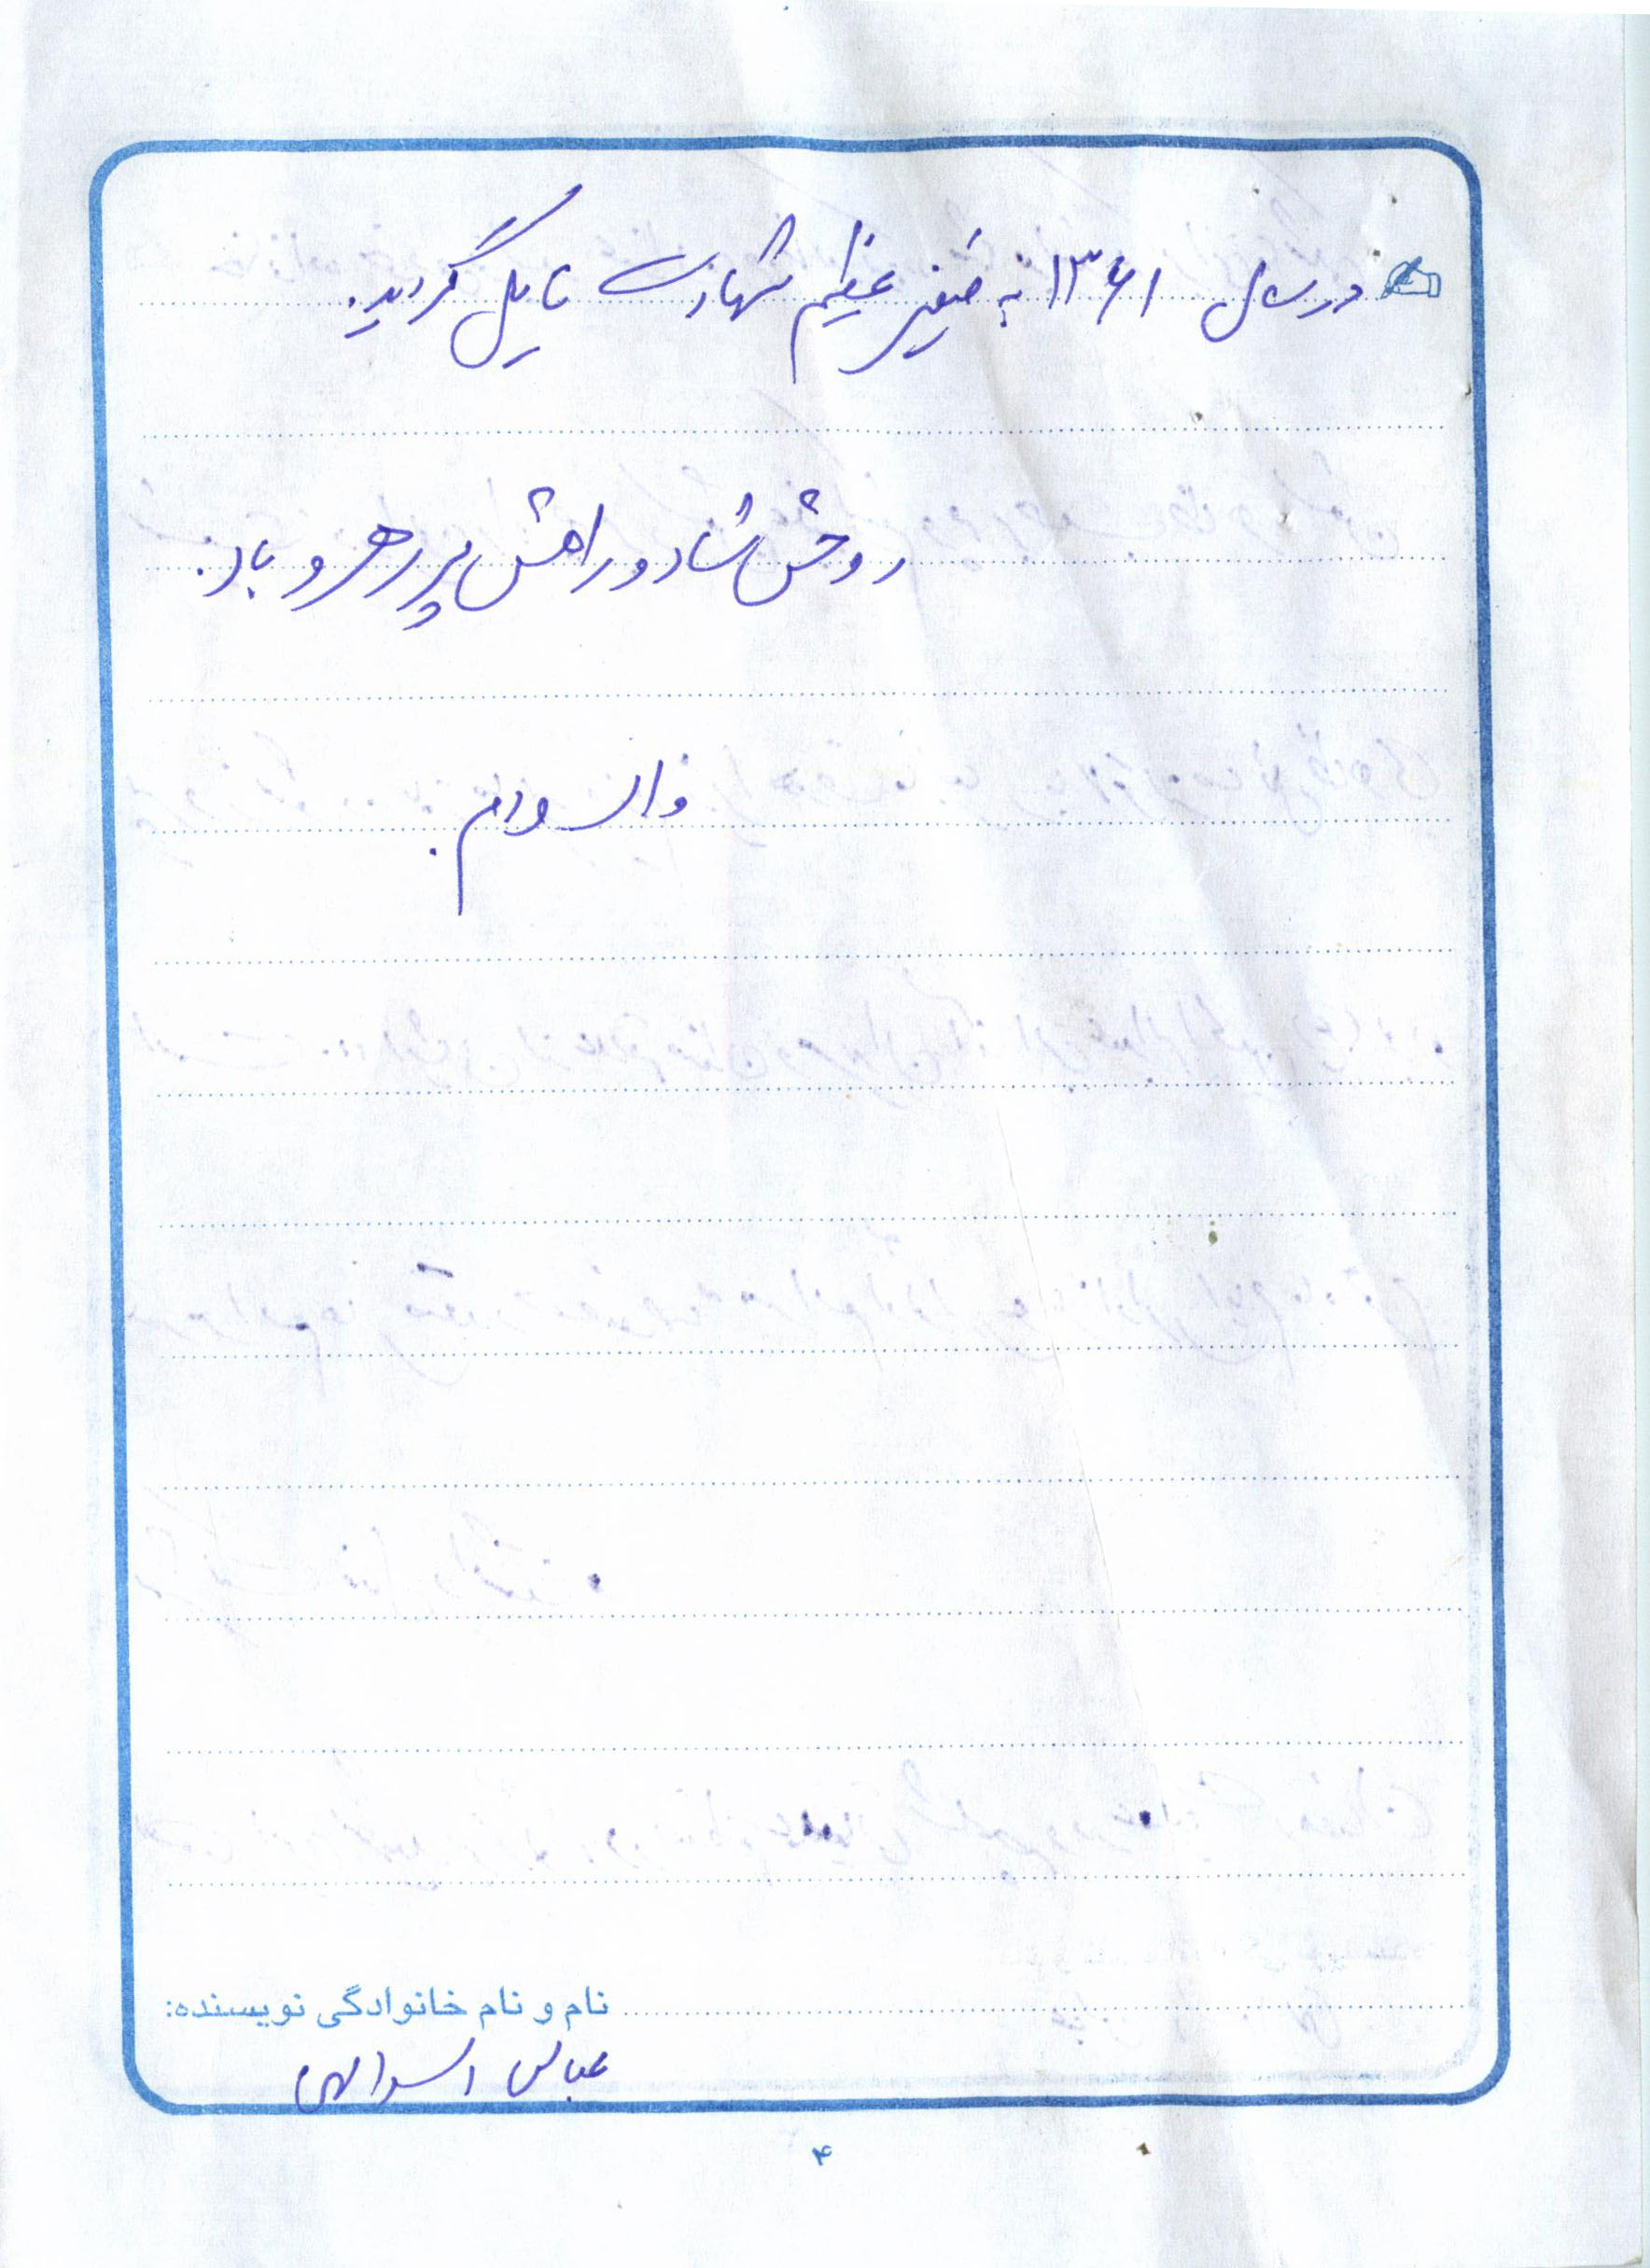 در سال ۱۳۶۱ به فیض عظیم شهادت نایل گردید.
روحش شاد و راهش پر رهرو باد.
والسلام.
نام و نام خانوادگی نویسنده:
عباس اسدالهی
۴